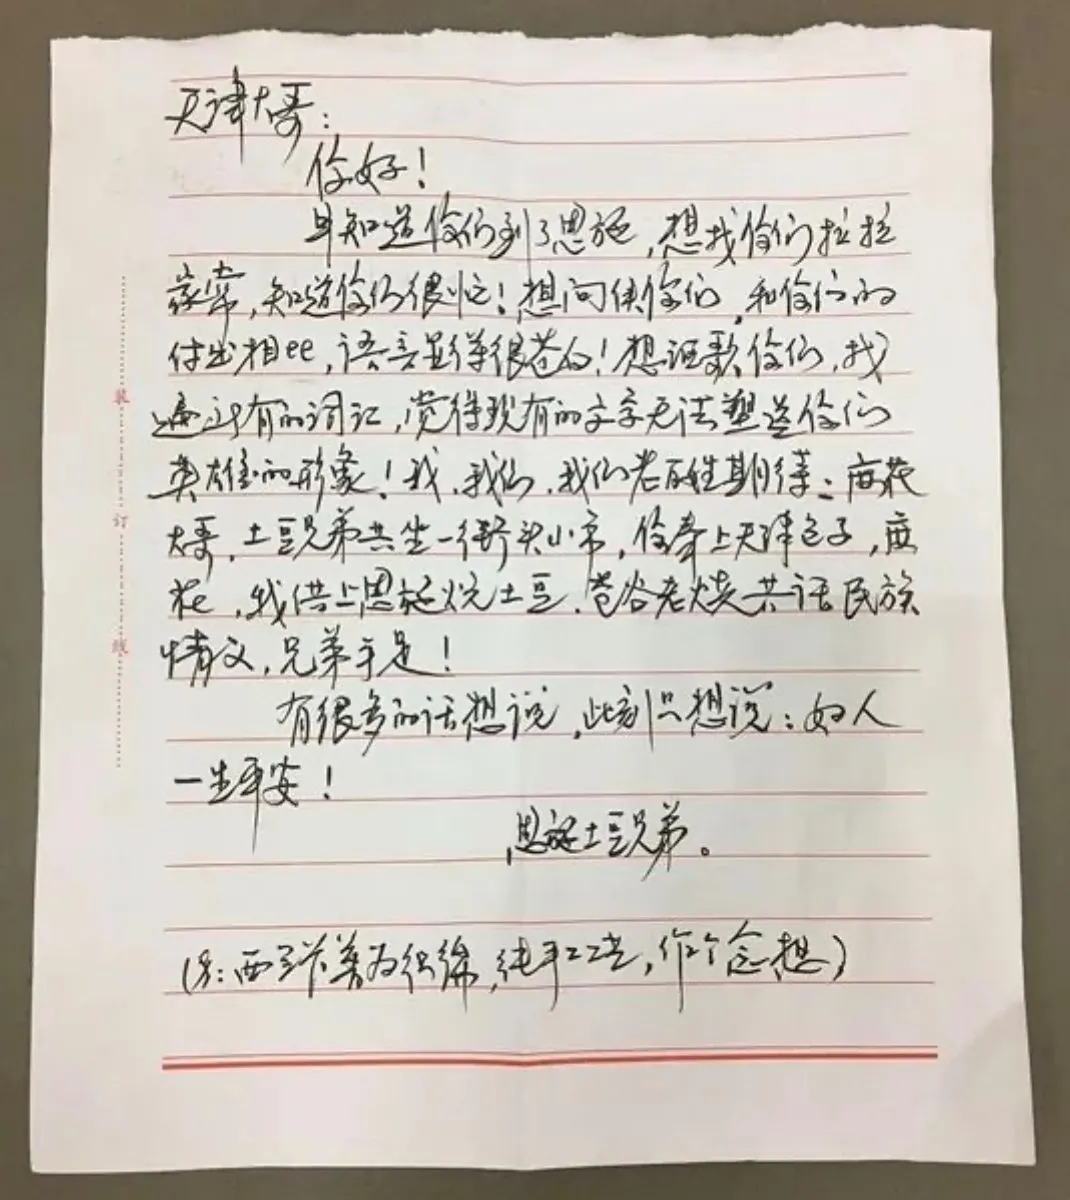 天津大哥：
你好！
早知道你们到了恩施，想找你们拉拉
家常，知道你们很忙！想问候你们，和你们的
付出相比，语言显得很苍白！想讴歌你们，找
遍所有的词汇，觉得现有的文字无法塑造你们
英雄的形象！我、我们、我们老百姓期待：麻花
大哥、土豆兄弟共坐一街头小市，你奉上天津包子，麻
花，我供上恩施炕土豆、苞谷老烧共话民族
情义，兄弟手足！
有很多的话想说，此刻只想说：好人
一生平安！
恩施土豆兄弟。
西兰卡普为织锦，纯手工艺，作个念想）
装
订
线